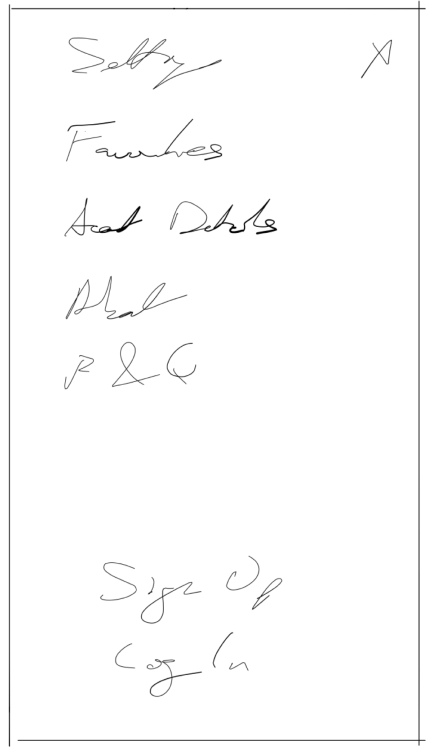 Setting X
Favourites
Acct Details
About
F & Q
Sign Up
Log In